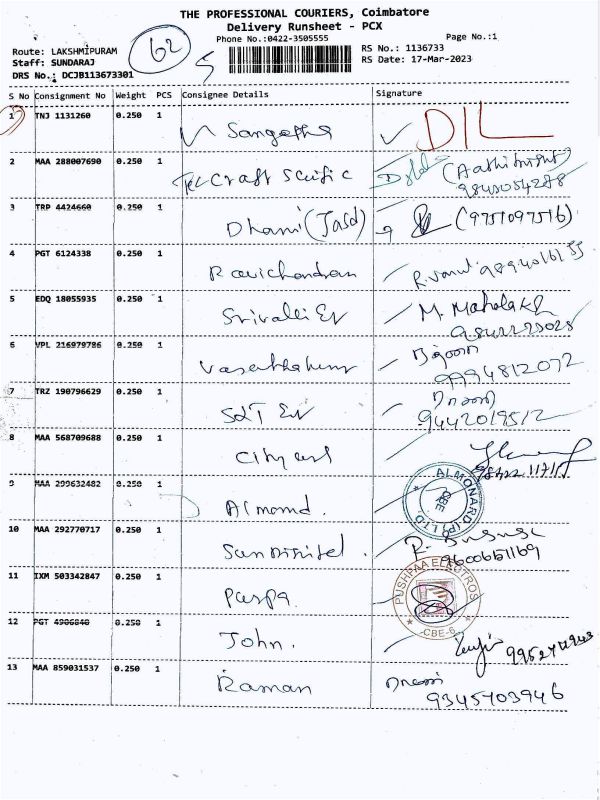 THE PROFESSIONAL COURIERS, Coimbatore
Delivery Runsheet - PCX
Phone No.:0422-3505555
Page No.:1
Route: LAKSHMIPURAM
Staff: SUNDARAJ
DRS No.: DCJB113673301
62
RS No.: 1136733
RS Date: 17-Mar-2023
S No Consignment No Weight PCS Consignee Details Signature
1 TNJ 1131260 0.250 1 Sangetha DIL
2 MAA 288007690 0.250 1 Craft
3 TRP 4424660 0.250 1 Dhami (Jasd) (9751097516)
4 PGT 6124338 0.250 1 Ravichandran
5 EDQ 18055935 0.250 1 M.
6 VPL 216979786 0.250 1 9994812072
7 TRZ 190796629 0.250 1 9442019512
8 MAA 568709688 0.250 1 City
9 MAA 299632482 0.250 1 Almond. ALMONARD (P) LTD CBE
10 MAA 292770717 0.250 1 R. 9600651169
11 IXM 503342847 0.250 1 Puspa PUSHPAA CBE-6
12 PGT 4906840 0.250 1 John.
13 MAA 859031537 0.250 1 Raman 9345703946